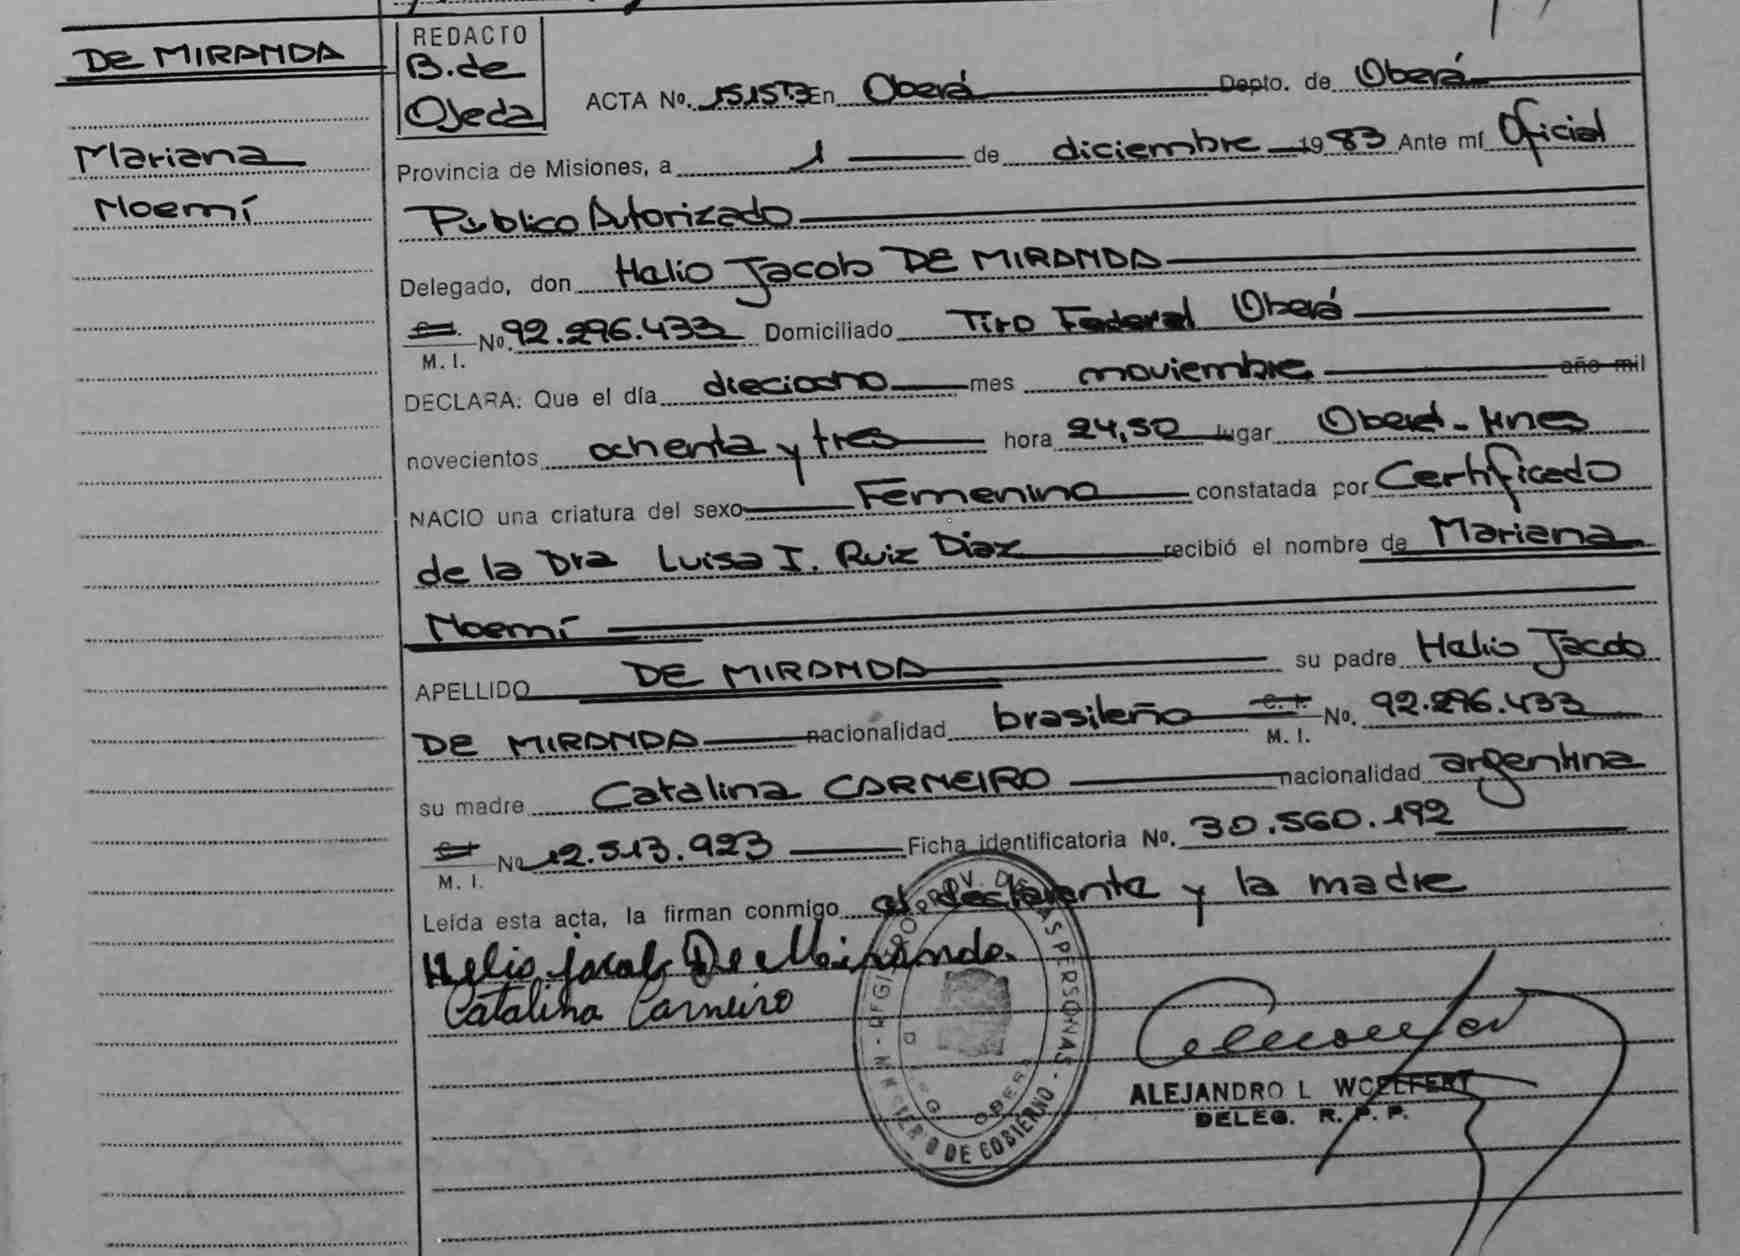 DE MIRANDA
Mariana
Noemí
REDACTO
B. de
Ojeda
ACTA No. 1515T3 En Oberá Depto. de Oberá
Provincia de Misiones, a 1 de diciembre 1983 Ante mí Oficial
Público Autorizado
Delegado, don Helio Jacob DE MIRANDA
M. I. No. 92.296.433 Domiciliado Tiro Federal Oberá
DECLARA: Que el día dieciocho mes noviembre año mil
novecientos ochenta y tres hora 24,50 lugar Oberá - Mnes
NACIO una criatura del sexo Femenino constatada por Certificado
de la Dra Luisa I. Ruiz Diaz recibió el nombre de Mariana
Noemí
APELLIDO DE MIRANDA su padre Helio Jacob
DE MIRANDA nacionalidad brasileño C. I. M. I. No. 92.296.433
su madre Catalina CARNEIRO nacionalidad argentina
M. I. No 12.513.923 Ficha identificatoria No. 30.560.192
Leída esta acta, la firman conmigo el declarante y la madre
Helio Jacob De Miranda.
Catalina Carneiro
PERSONAS
OBERA
DE GOBIERNO
ALEJANDRO L WOELFERT
DELEG. R. P. P.